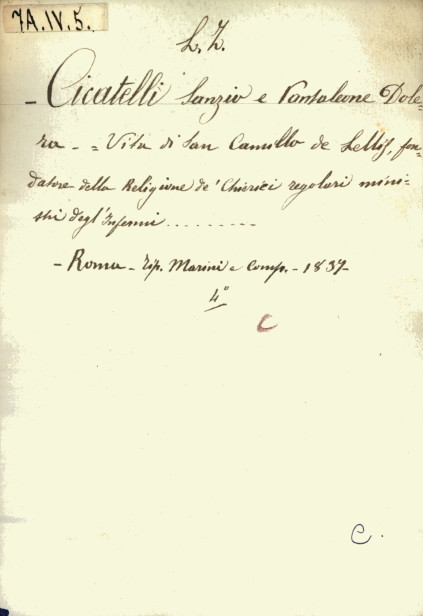 7A.IV.5.
L. Z.
- Cicatelli Sanzio e Pantaleone Dole-
ra - = Vita di San Camillo de Lellis, fon-
datore della Religione de' Chierici regolari mini-
stri degl'Infermi .........
- Roma - Tip. Marini e Comp. - 1837-
4°
C
C.